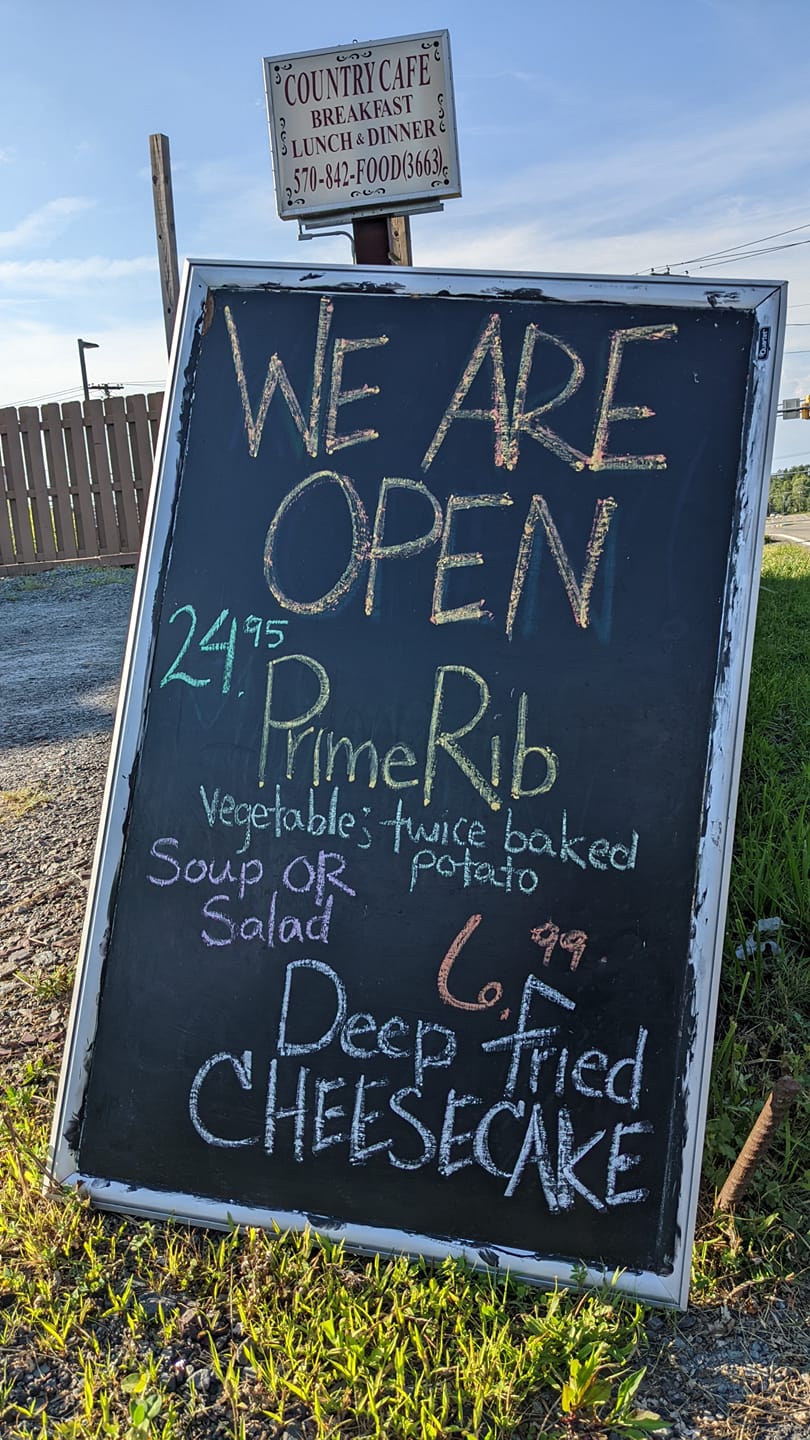 COUNTRY CAFE
BREAKFAST
LUNCH & DINNER
570-842-FOOD(3663)
Quartet
WE ARE
OPEN
24.95
Prime Rib
Vegetable; twice baked
potato
Soup OR
Salad
6.99
Deep Fried
CHEESECAKE